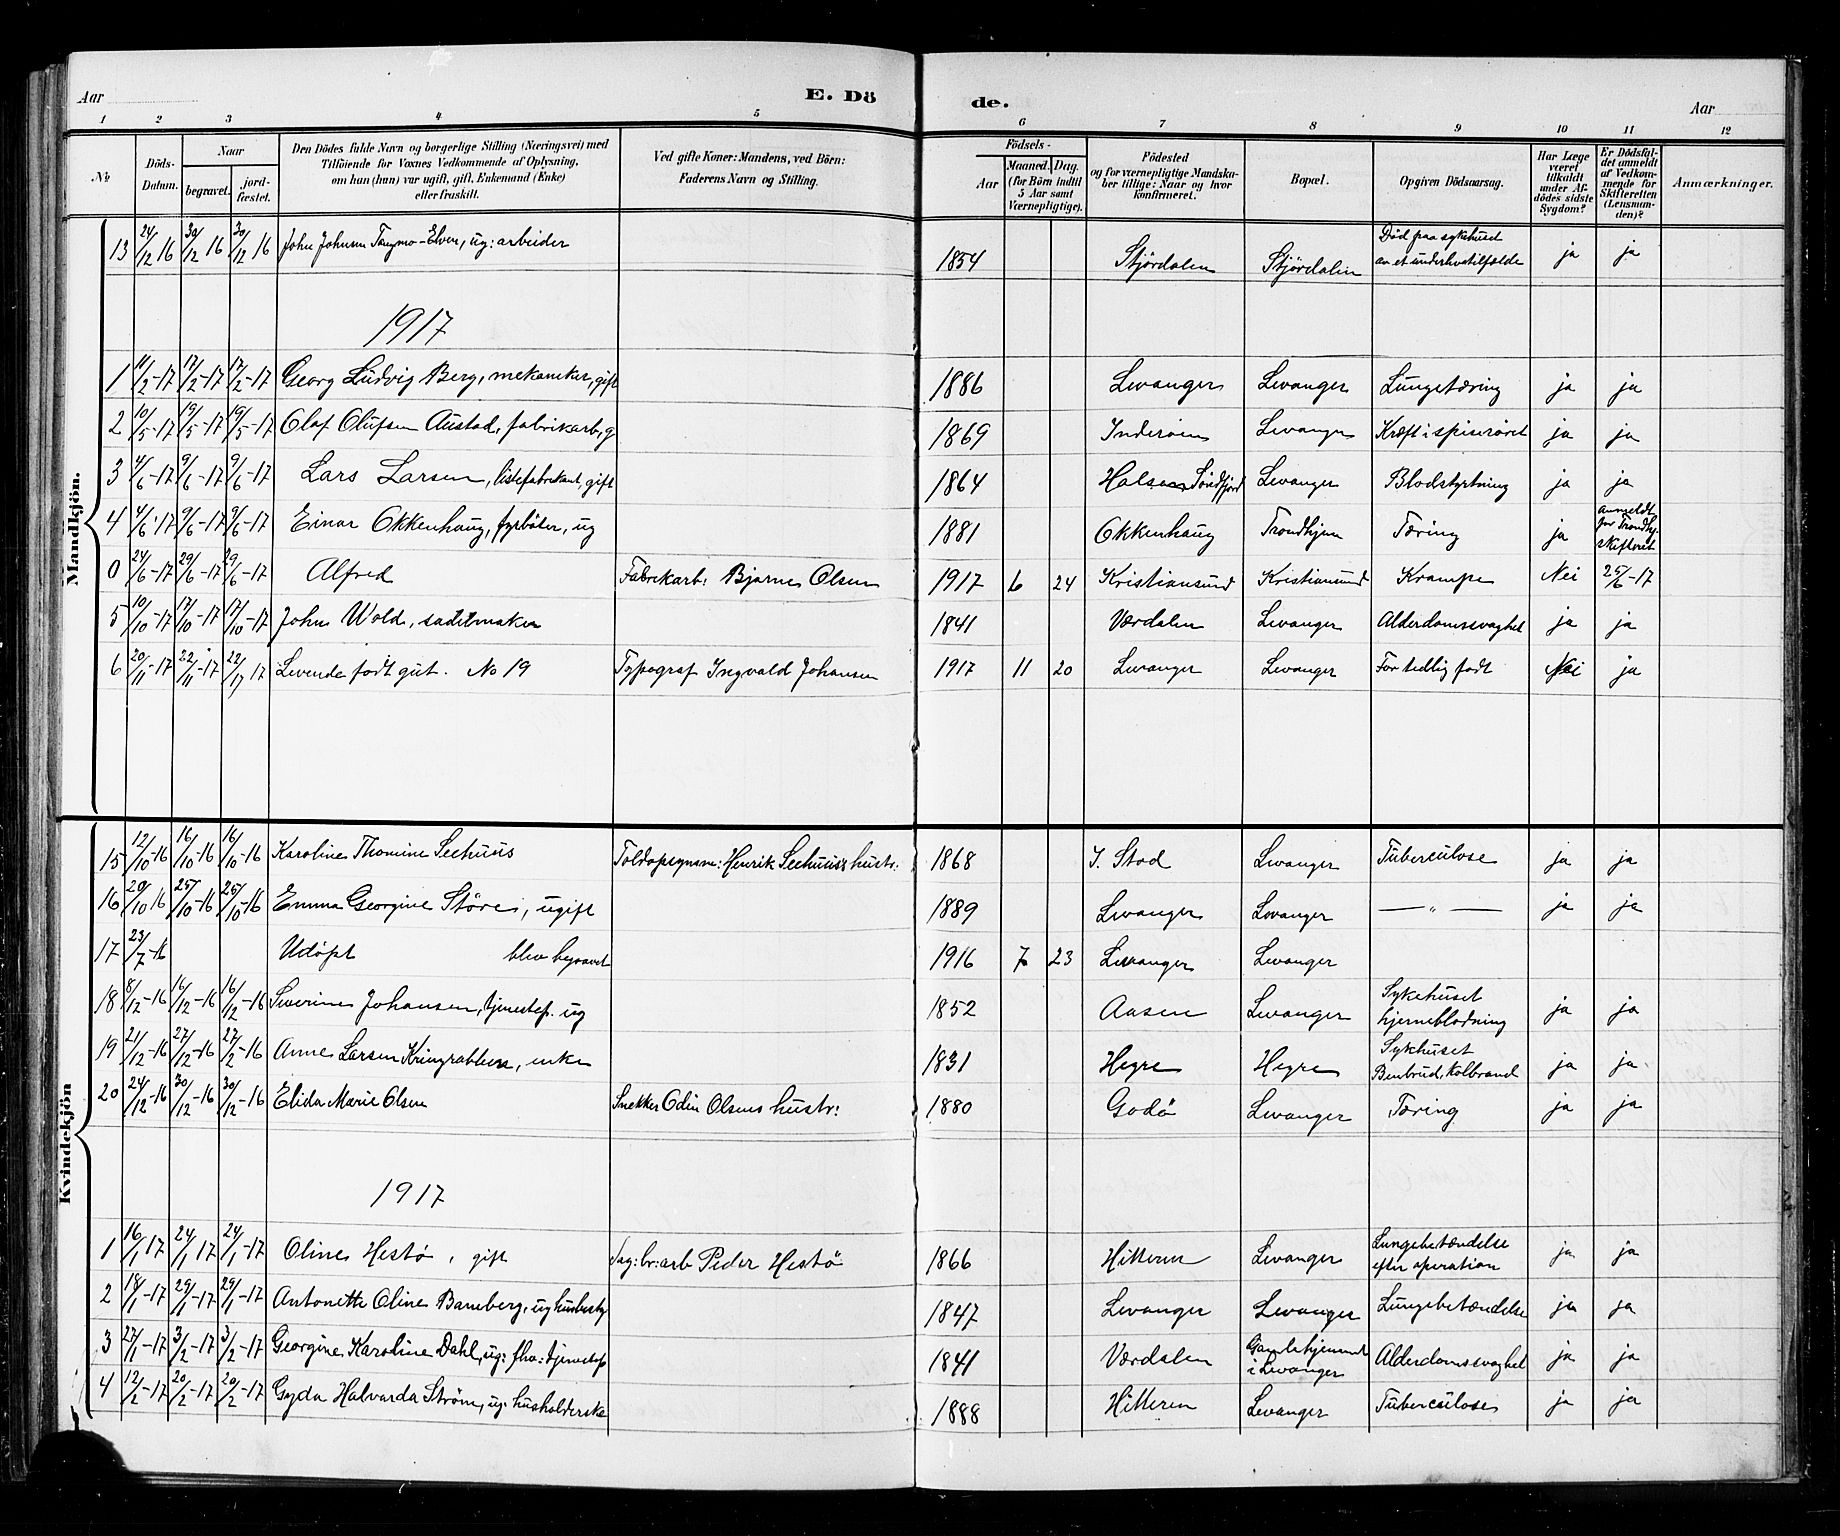 Aar E. Dö de. Aar
1 2 3 4 5 6 7 8 9 10 11 12
No
Döds-Datum.
Naar
begravet. jord-fæstet.
Den Dödes fulde Navn og borgerlige Stilling (Næringsvei) med
Tillöiende for Voxnes Vedkommende af Oplysning,
om han (hun) var ugift, gift, Enkemand (Enke)
eller fraskilt.
Ved gifte Koner: Mandens, ved Börn:
Faderens Navn og Stilling.
Födsels-
Aar Maaned. Dag.
(for Börn indtil
5 Aar samt
Værnepligtige).
Födested
og for værnepligtige Mandska-
ber tillige: Naar og hvor
konfirmeret.
Bopæl.
Opgiven Dödsaarsag.
Har Læge
været
tilkaldt
under Af-
dödes sidste
Sygdom?
Er Dödsfal-
det anmeldt
af Vedkom-
mende for
Skifteretten
(Lensman-
den)?
Anmærkninger.
Mandkjön.
13 24/12 16 30/12 16 30/12 16 John Johnsen -Elven, ug: arbeider 1854 Stjördalen Stjördalen Död paa sykehuset
av et ja ja
1917
1 11/2-17 17/2-17 17/2-17 Georg Ludvig Berg, mekaniker, gift 1886 Levanger Levanger Lungetæring ja ja
2 10/5-17 19/5-17 19/5-17 Olaf Olufsen Austad, fabrikarb, g 1869 Inderöen Levanger Kræft i spiseröret ja ja
3 4/6-17 9/6-17 9/6-17 Lars Larsen, listefabrikant, gift 1864 Levanger Blodstyrtning ja ja
4 4/6-17 9/6-17 9/6-17 Einar Okkenhaug, fyrböter, ug 1881 Okkenhaug Trondhjem Tæring ja anmeldt
for Trondhj.
skifteret
0 24/6-17 29/6-17 29/6-17 Alfred Fabrikarb: Bjarne Olsen 1917 6 24 Kristiansund Kristiansund Krampe Nei 25/6-17
5 10/10-17 17/10-17 17/10-17 John Wold, sadelmaker 1841 Værdalen Levanger Alderdomssvaghet ja ja
6 20/11-17 22/11-17 22/11 17 Levende födt gut. No 19 Typograf Ingvald Johansen 1917 11 20 Levanger Levanger For tidlig födt Nei ja
Kvindekjön
15 12/10-16 16/10-16 16/10-16 Karoline Thomine Seehuus Toldopsynsm: Henrik Seehuus's hustr: 1868 Y. Stod Levanger Tuberculose ja ja
16 20/10 16 25/10-16 25/10-16 Emma Georgine Störe, ugift 1889 Levanger Levanger — " — ja ja
17 23/7-16 Udöpt blev begravet 1916 7 23 Levanger Levanger
18 8/12-16 16/12-16 16/12-16 Severine Johansen, tjenestep. ug 1852 Aasen Levanger Sykehuset
hjerneblödning ja ja
19 21/12-16 27/12-16 27/2-16 Anne Larsen , enke 1831 Hegre Hegre Sykhuset
Benbrud, Kolbrand ja ja
20 24/12-16 30/12-16 30/12-16 Elida Marie Olsen Snekker Odin Olsens hustr: 1880 Godö Levanger Tæring ja ja
1917
1 16/1 17 24/1 17 24/1-17 Oline Hestö, gift Sag:br:arb Peder Hestö 1866 Hitteren Levanger Lungebetændelse
efter operation ja ja
2 18/1-17 29/1-17 29/1-17 Antonette Oline Bamberg, ug husbesty 1847 Levanger Levanger Lungebetændelse ja ja
3 27/1-17 3/2-17 3/2-17 Georgine Karoline Dahl, ug: fhv: tjenestep 1841 Værdalen Gamlehjemmet
i Levanger Alderdomssvaghet ja ja
4 12/2-17 20/2-17 20/2-17 Gyda Halvarda Ström, ug: husholderske 1888 Hitteren Levanger Tuberculose ja ja